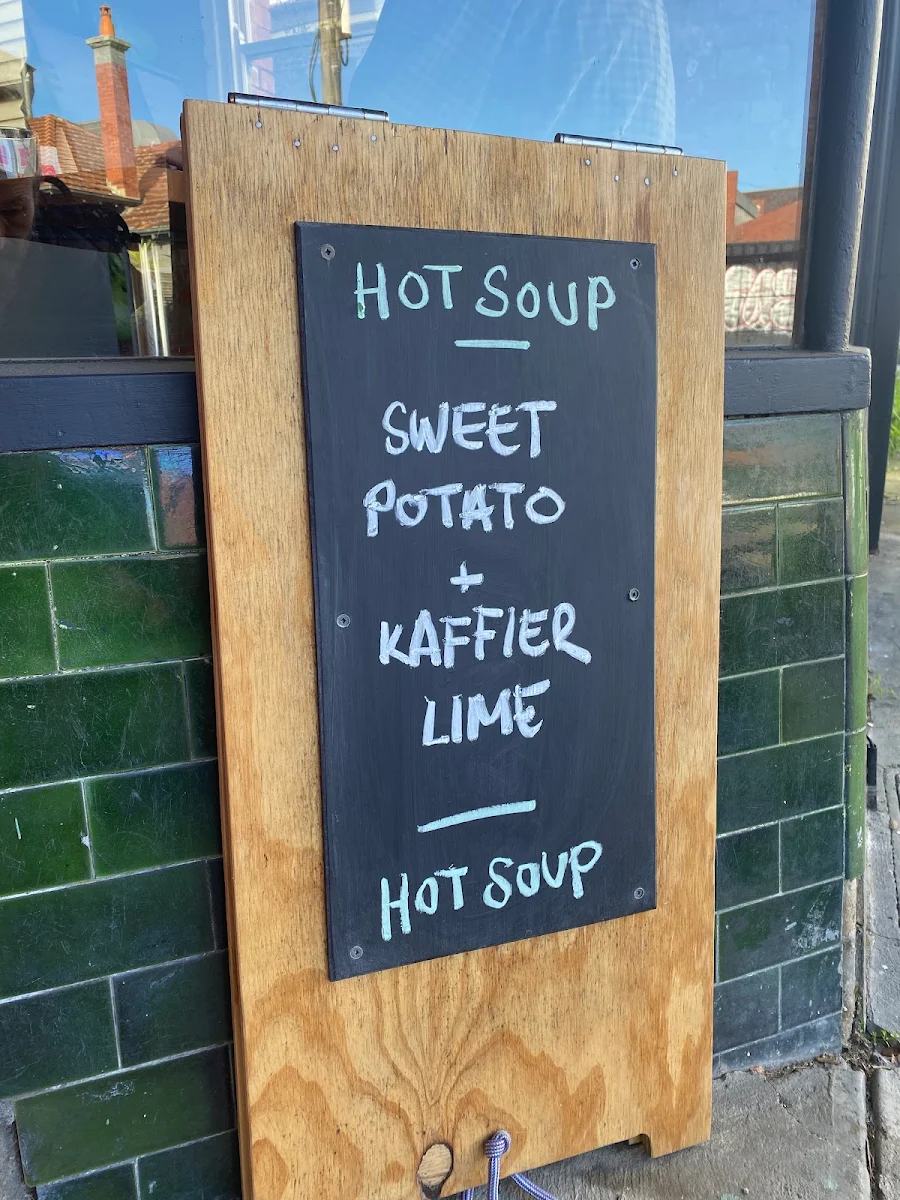 HOT SOUP
SWEET
POTATO
+
KAFFIER
LIME
HOT SOUP